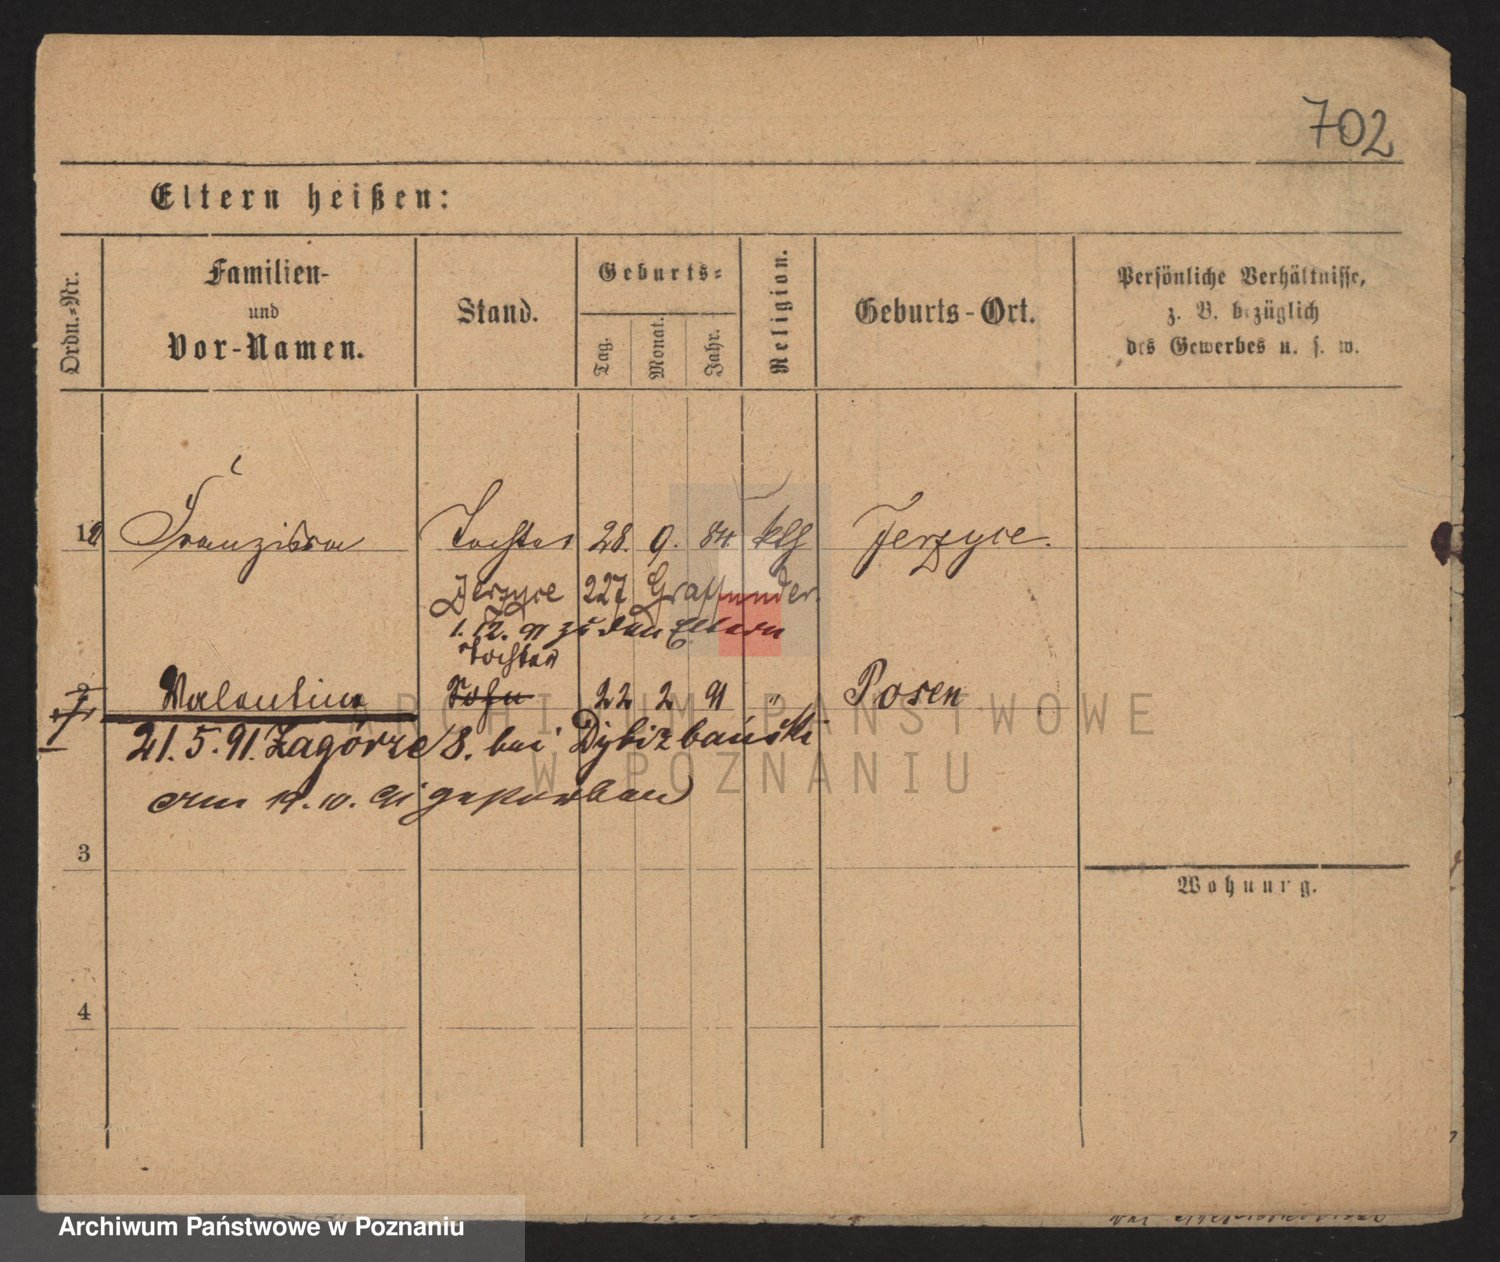 702
Eltern heißen:
Ordn.-Nr.
Familien-
und
Vor-Namen.
Stand.
Geburts-
Tag.
Monat.
Jahr.
Religion.
Geburts-Ort.
Persönliche Verhältnisse,
z. B. bezüglich
des Gewerbes u. s. w.
12 Franziska Tochter 28. 9. 84 kth Jerzyce.
Jerzyce 227 Graffunder.
1. 12. 91 zu den Eltern
Tochter
2 Valentina Sohn 22 2 91 " Posen
21. 5. 91. Zagórze 8. bei Dybizbański
am 14. 10. 91 gestorben
3
Wohnung.
4
ARCHIWUM PAŃSTWOWE
W POZNANIU
Archiwum Państwowe w Poznaniu